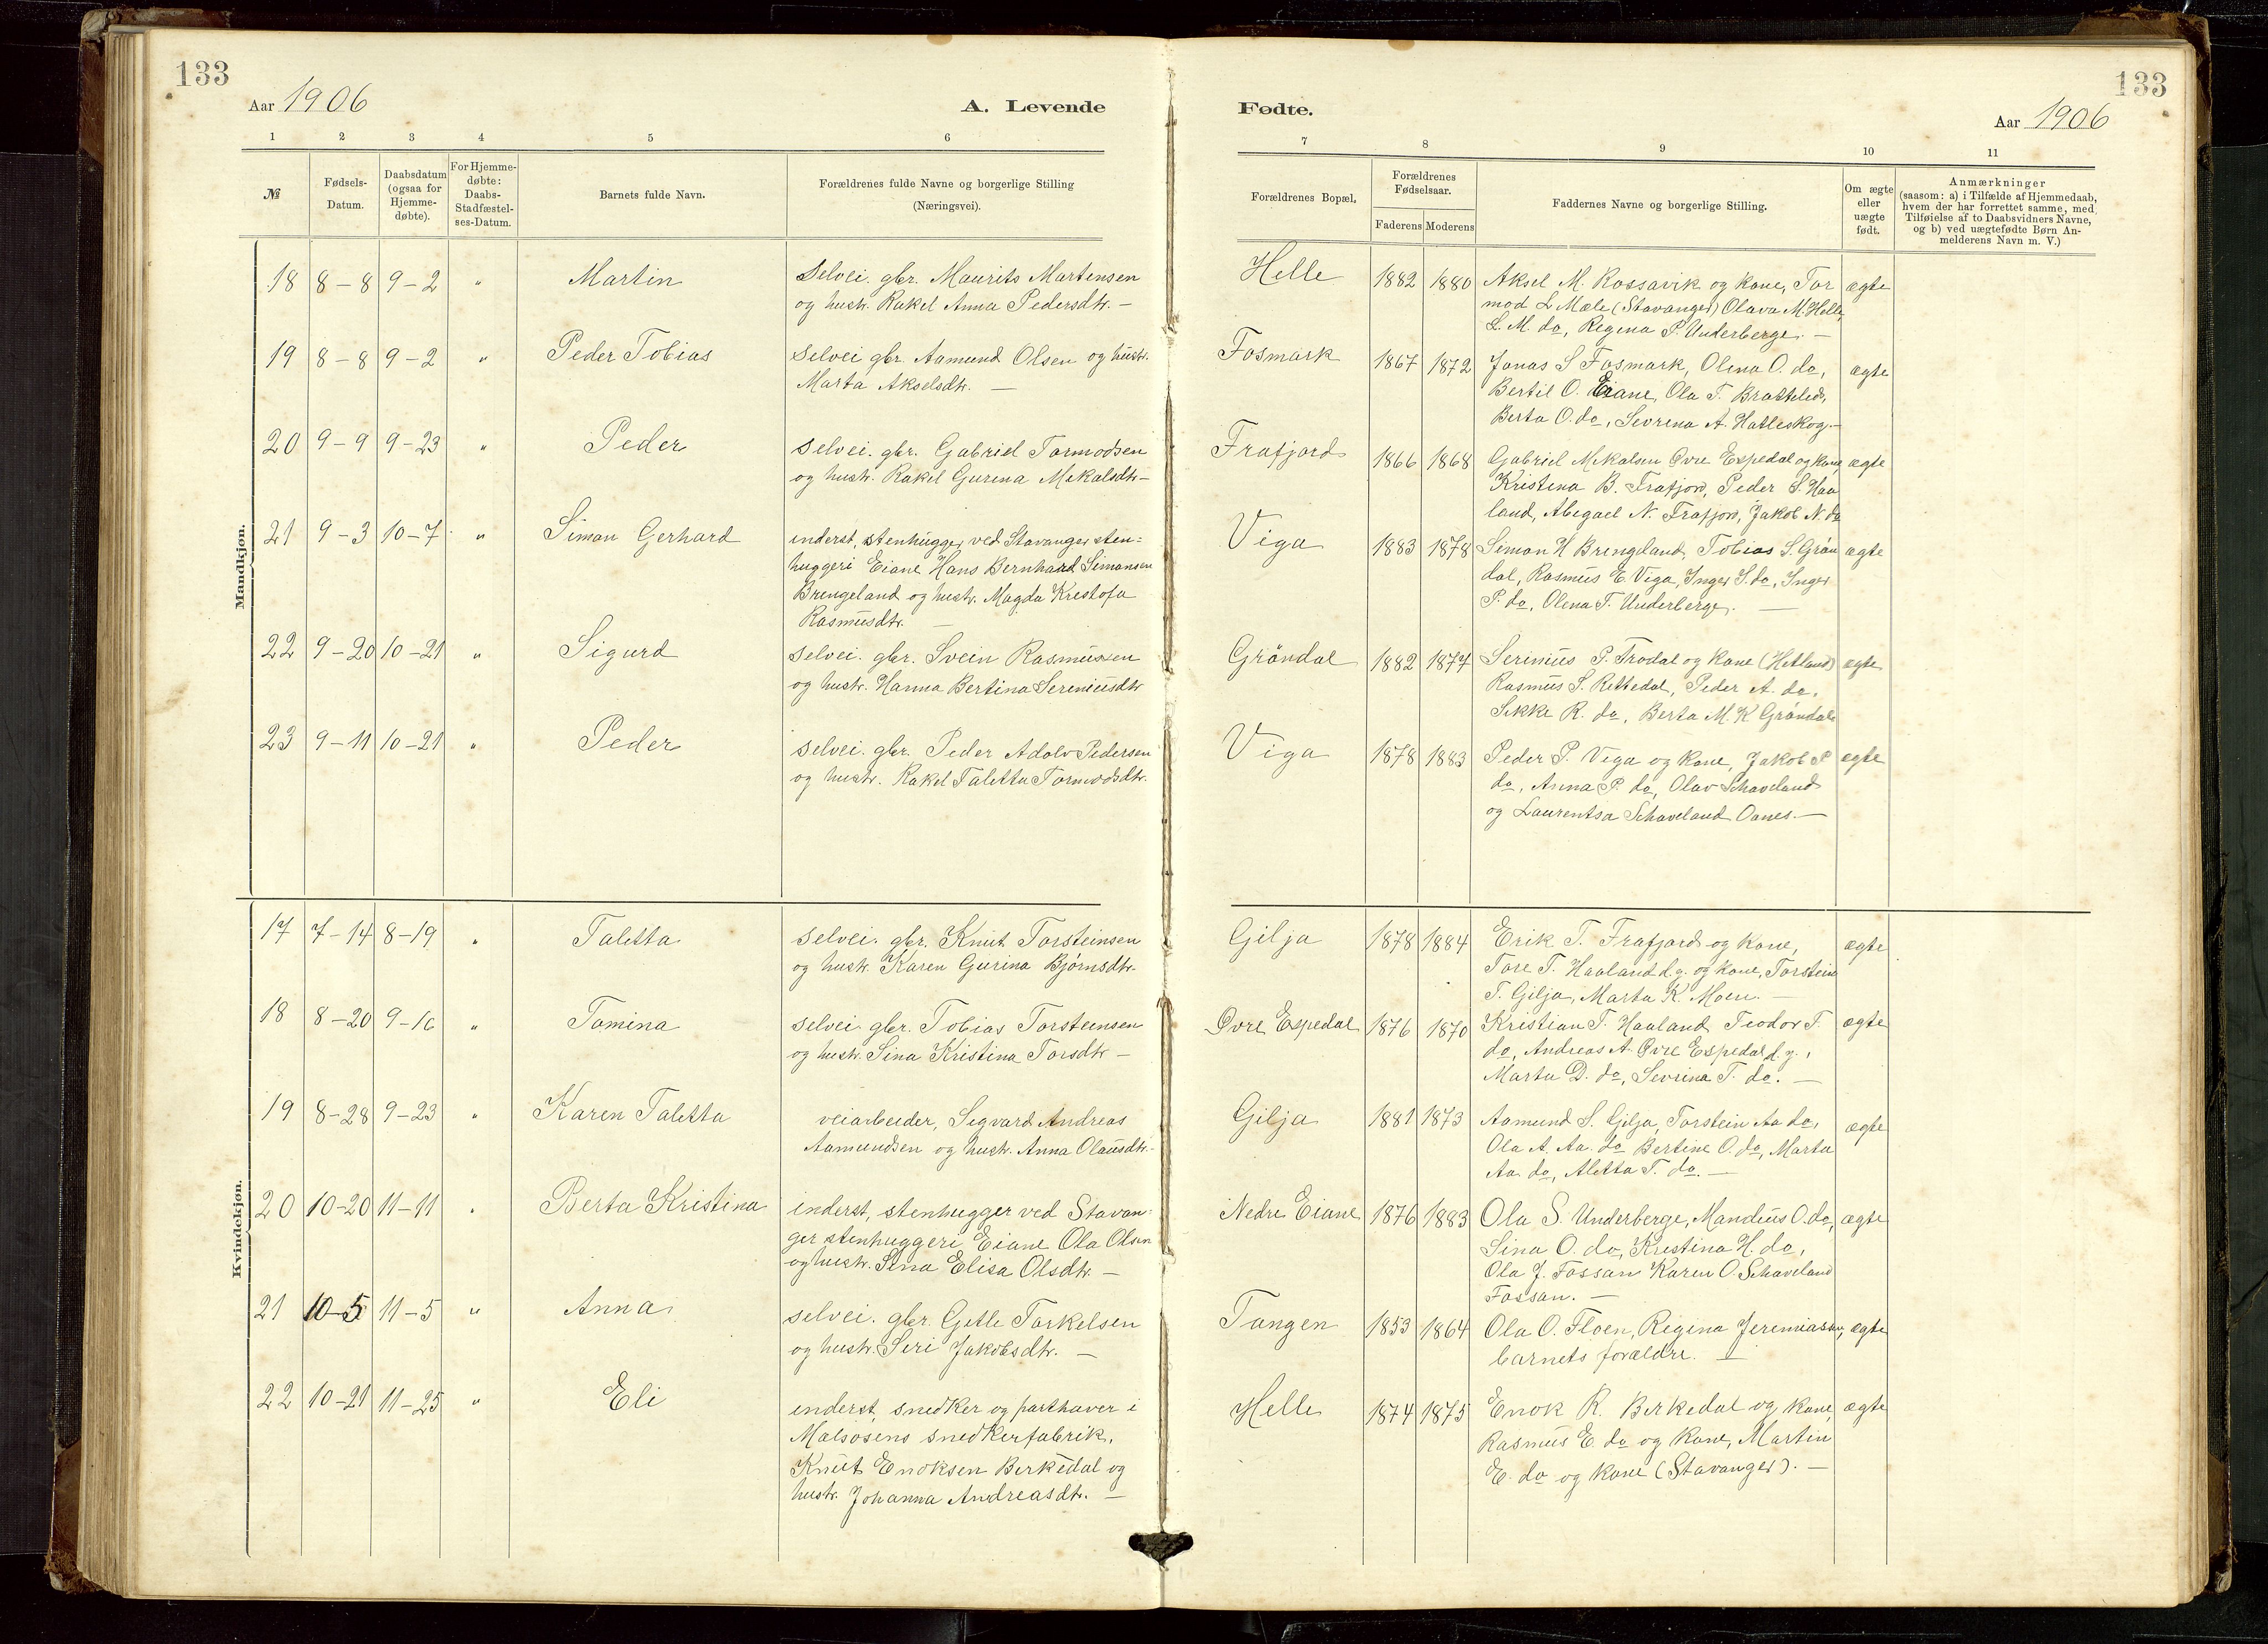 133
Aar 1906
A. Levende
1 2 3 4 5 6
№
Fødsels-
Datum.
Daabsdatum
(ogsaa for
Hjemme-
døbte).
For Hjemme-
døbte:
Daabs-
Stadfæstel-
ses-Datum.
Barnets fulde Navn.
Forældrenes fulde Navne og borgerlige Stilling
(Næringsvei).
Mandkjøn.
18 8-8 9-2 " Martin
Selvei. gbr. Maurits Martensen
og hustr. Rakel Anna Pedersdtr. —
19 8-8 9-2 " Peder Tobias
Selvei gbr. Aamund Olsen og hustr.
Marta Akselsdtr. —
20 9-9 9-23 " Peder
Selvei. gbr. Gabriel Tormodsen
og hustr. Rakel Gurina Mikalsdtr —
21 9-3 10-7 " Simon Gerhard
inderst, stenhugger ved Stavanger sten=
huggeri Eiane Hans Bernhard Simonsen
Brengeland og hustr. Magda Kristofa
Rasmusdtr. —
22 9-20 10-21 " Sigurd
Selvei. gbr. Svein Rasmussen
og hustr. Hanna Bertina Sereniusdtr
23 9-11 10-21 " Peder
Selvei. gbr. Peder Adolv Pedersen
og hustr. Rakel Taletta Tormodsdtr.
Kvindekjøn.
17 7-14 8-19 " Taletta
Selvei. gbr. Knut Torsteinsen
og hustr. Karen Gurina Bjørnsdtr.
18 8-20 9-16 " Tomina
Selvei. gbr. Tobias Torsteinsen
og hustr. Sina Kristina Torsdtr —
19 8-28 9-23 " Karen Taletta
veiarbeider, Sigvard Andreas
Aamundsen og hustr. Anna Olausdtr. —
20 10-20 11-11 " Berta Kristina
inderst, stenhugger ved Stavan=
ger stenhuggeri Eiane Ola Olsen
og hustr. Sina Elisa Olsdtr. —
21 10-5 11-5 " Anna
Selvei. gbr. Getle Torkelsen
og hustr. Siri Jakobsdtr. —
22 10-21 11-25 " Eli
inderst, snedker og parthaver i
Målsosens snedkerfabrik,
Knut Enoksen Birkedal og
hustr. Johanna Andreasdtr. —
133
Fødte.
Aar 1906
7 8 9 10 11
Forældrenes Bopæl.
Forældrenes
Fødselsaar.
Faderens Moderens
Faddernes Navne og borgerlige Stilling.
Om ægte
eller
uægte
født.
Anmærkninger
(saasom: a) i Tilfælde af Hjemmedaab,
hvem der har forrettet samme, med
Tilføielse af to Daabsvidners Navne,
og b) ved uægtefødte Børn An-
melderens Navn m. V.)
Helle 1882 1880 Aksel M. Rossavik og kone, Tor ægte
mod L Mæle (Stavanger) Olava M. Helle,
L. M. do, Regina P. Underberge. —
Fosmark 1867 1872 Jonas S Fosmark, Olina O. do, ægte
Bertil O. Eiane, Ola T. Bratteli,
Berta O. do, Sevrina A. Hatleskog. —
Frafjord 1866 1868 Gabriel Mikalsen Øvre Espedal og kone, ægte
Kristina B. Frafjord, Peder S. Haa
land, Abigael N. Frafjord, Jakob N. do
Viga 1883 1878 Simon H Brengeland, Tobias S. Grön ægte
dal, Rasmus E. Viga, Inger S. do, Inger
P. do, Olena T. Underberge. —
Gröndal 1882 1877 Serinius P. Trodal og kone (Hetland) ægte
Rasmus S. Rettedal, Peder A. do,
Sikke R. do, Berta M. K Gröndal
Viga 1878 1883 Peder P. Viga og kone, Jakob P ægte
do, Anna P. do, Olav Schaveland
og Laurentsa Schaveland Oanes. —
Gilja 1878 1884 Erik T. Frafjord og kone, ægte
Tore T. Haaland d. y. og kone, Torstein
T. Gilja, Marta K. Moen. —
Øvre Espedal 1876 1870 Kristian T. Haaland, Teodor T. ægte
do, Andreas A. Øvre Espedal d. y.,
Marta D. do, Sevrina T. do. —
Gilja 1881 1873 Aamund S. Gilja, Torstein Aa do, ægte
Ola A. Aa. do Bertine O. do, Marta
Aa. do, Aletta T. do. —
Nedre Eiane 1876 1883 Ola S. Underberge, Mandius O. do, ægte
Sina O. do, Kristina H. do,
Ola J. Fossan Karen O. Schaveland
Fossan. —
Tangen 1853 1864 Ola O. Floen, Regina Jeremiasen, ægte
barnets forældre. —
Helle 1874 1875 Enok R. Birkedal og kone, ægte
Rasmus E. do og kone, Martin
E. do og kone (Stavanger). —